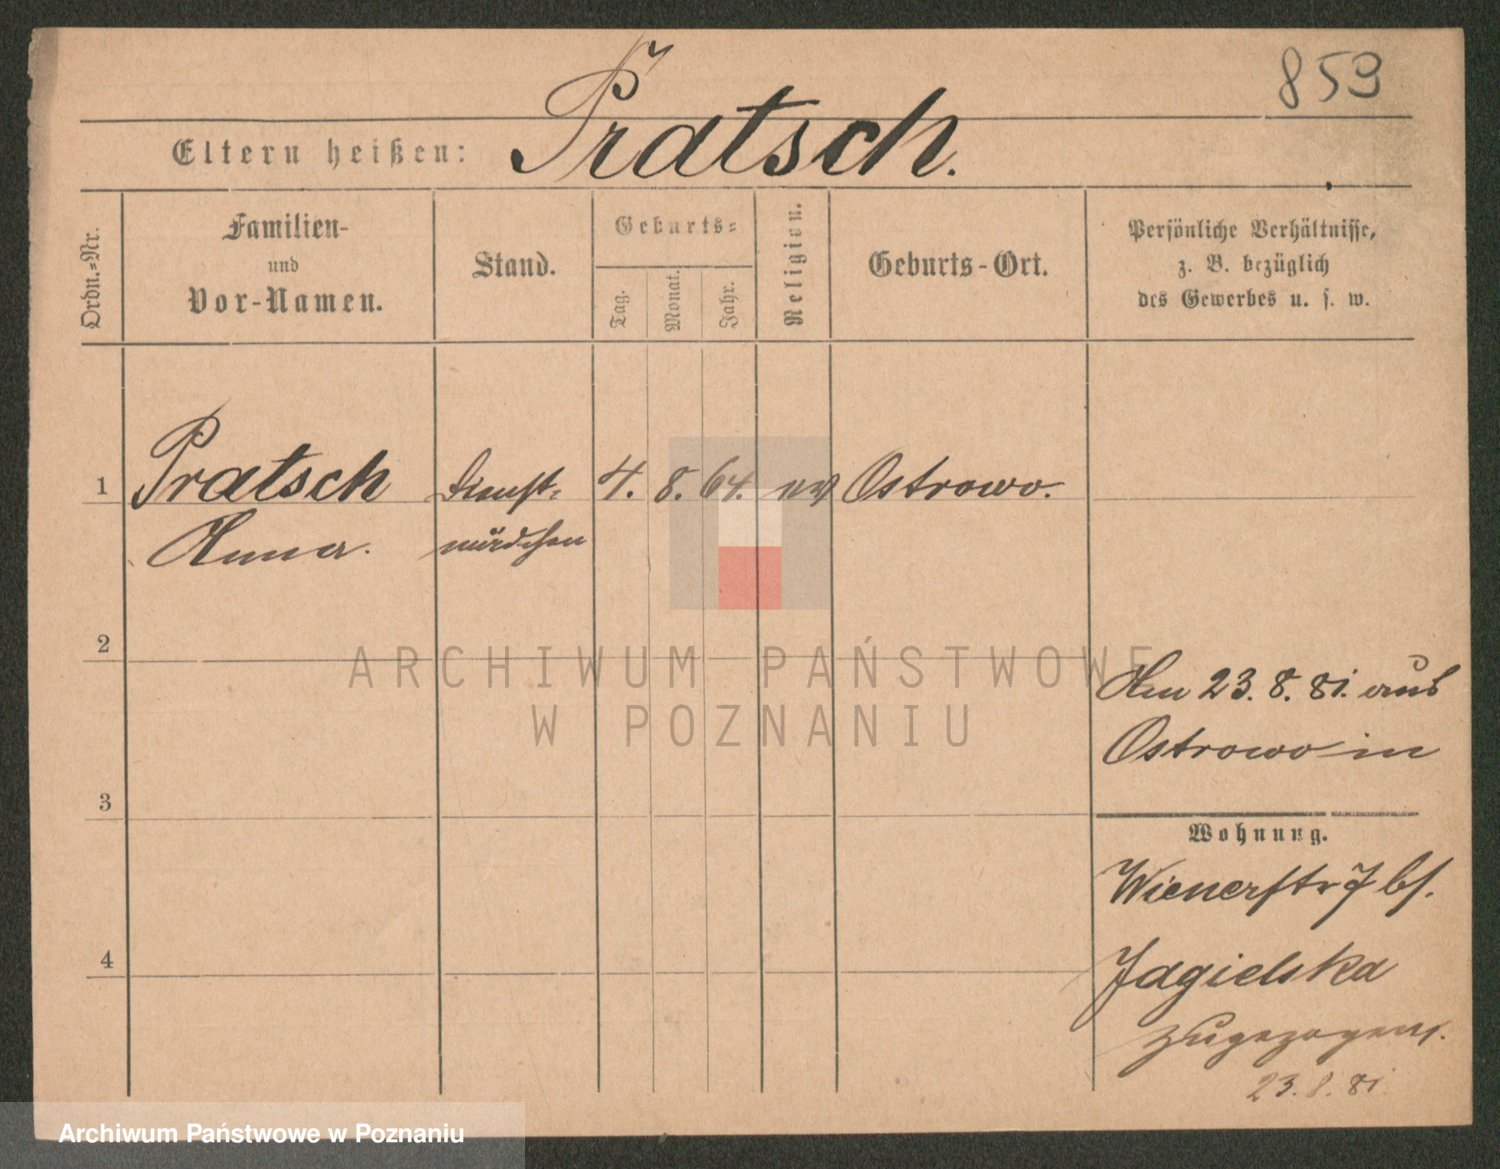 859
Pratsch.
Eltern heißen:
Ordn.=Nr.
Familien-
und
Vor-Namen.
Stand.
Geburts=
Tag.
Monat.
Jahr.
Religion.
Geburts-Ort.
Persönliche Verhältnisse,
z. B. bezüglich
des Gewerbes u. s. w.
1 Pratsch Dienst= 4. 8. 64. ev Ostrowo.
Anna. mädchen
2
Am 23. 8. 81. aus
Ostrowo in
3
Wohnung.
Wienerstr 7 bei
4
Jagielska
zugezogen.
23. 8. 81
ARCHIWUM PAŃSTWOWE
W POZNANIU
Archiwum Państwowe w Poznaniu